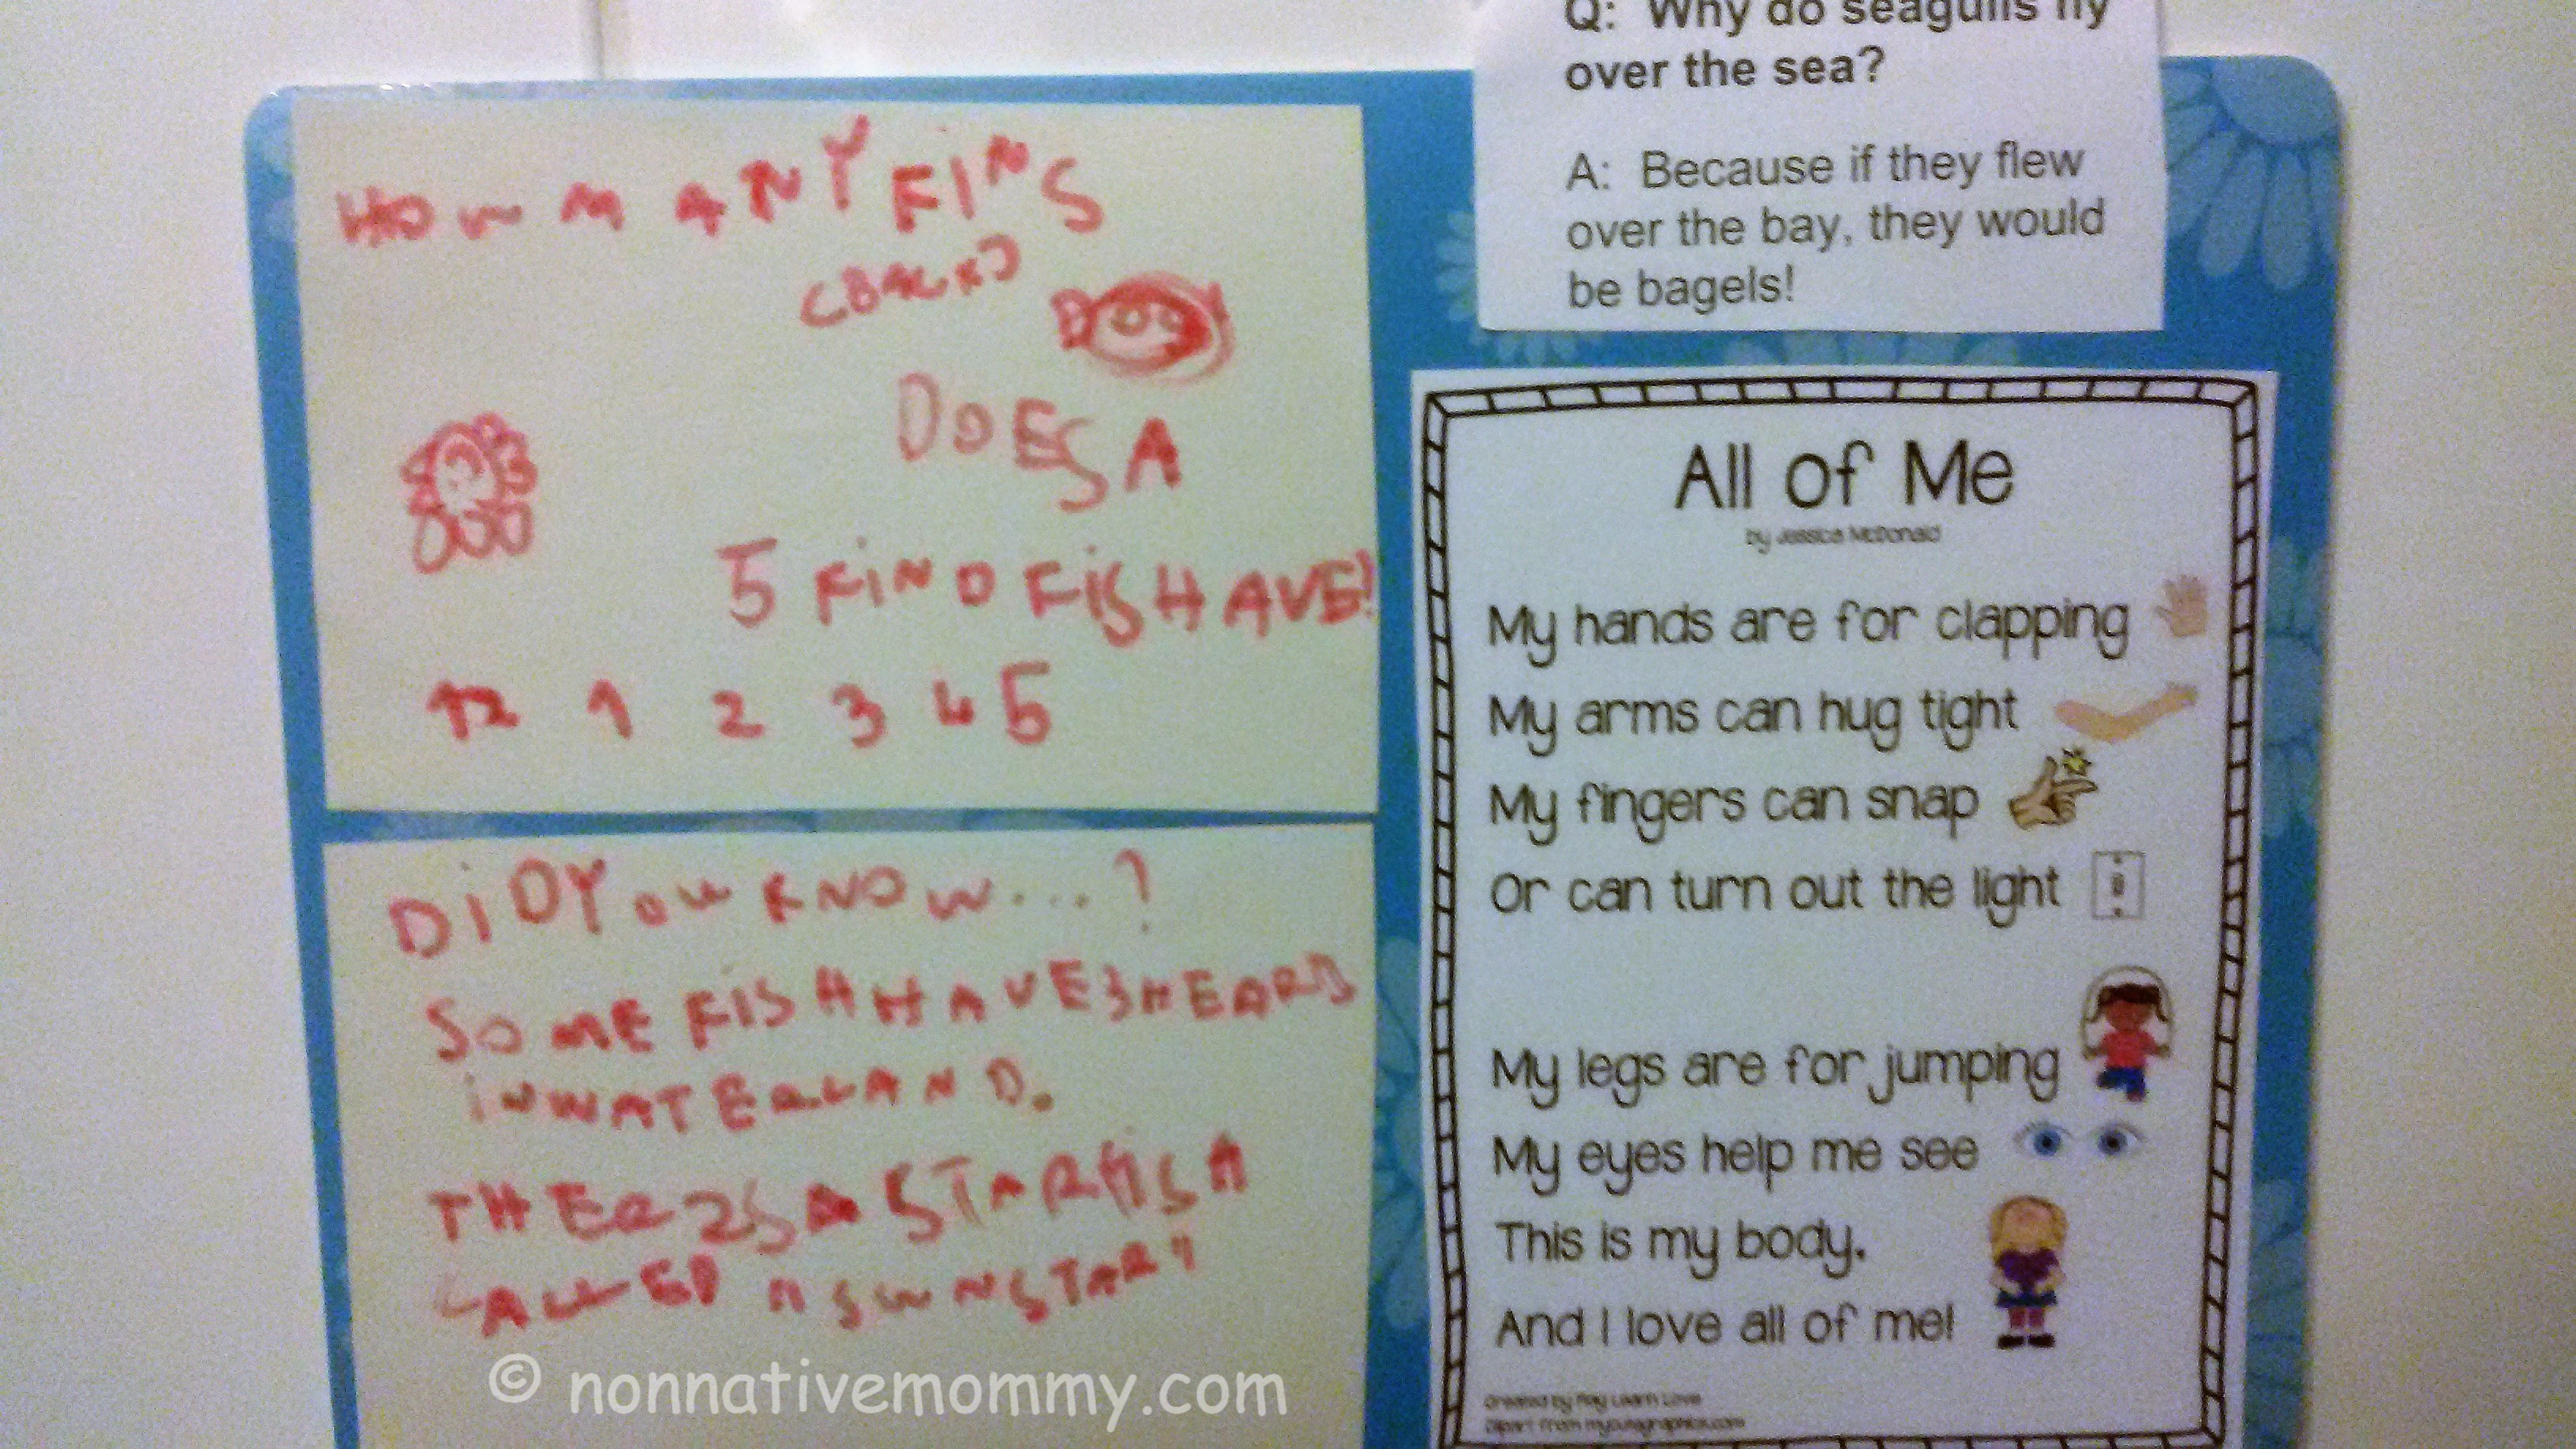 HOW MANY FINS
(BACK)
DOES A
5 FIND FISH AVE!
12 1 2 3 4 5
DiD YOU KNOW...?
SOME FISH HAVE SHEARDS
iN WATERLAND.
THER 2S A STARFISH
CALLED "SUNSTAR"
Q: Why do seagulls fly
over the sea?
A: Because if they flew
over the bay, they would
be bagels!
All of Me
by Jessica McDonald
My hands are for clapping
My arms can hug tight
My fingers can snap
Or can turn out the light
My legs are for jumping
My eyes help me see
This is my body.
And I love all of me!
Created by Play Learn Love
Clipart from mycutegraphics.com
© nonnativemommy.com